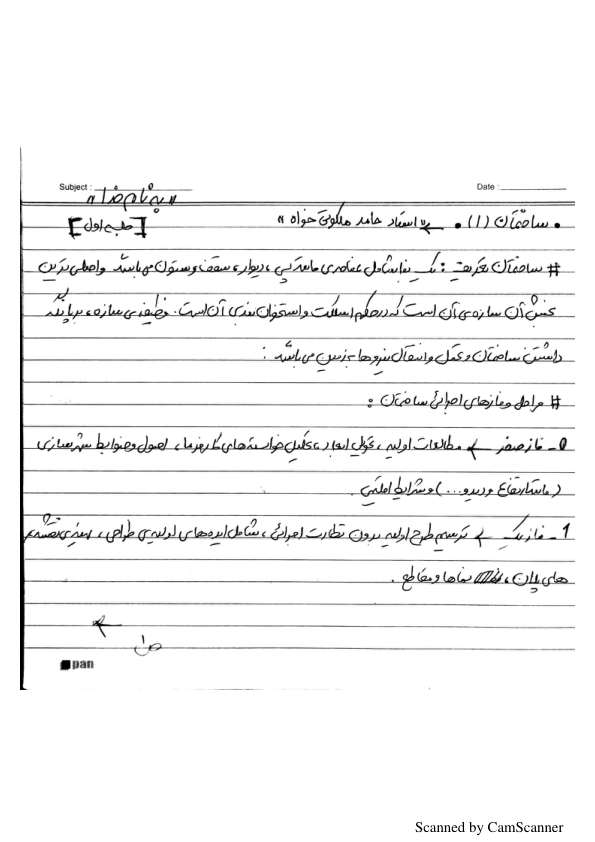 Subject : «به نام خدا» Date :
• ساختمان (1) • ← «استاد حامد ملکوتی خواه» [جلسه اول]
# ساختمان تعریف : یک بنا شامل عناصری مانند پی ، دیوار ، سقف و ستون می باشد و اصلی ترین
بخش آن سازه ی آن است که در حکم اسکلت و استخوان بندی آن است. وظیفه ی سازه ، برپا نگه
داشتن ساختمان و حمل و انتقال نیروها به زمین می باشد :
# مراحل و فازهای اجرائی ساختمان :
0- فاز صفر ← مطالعات اولیه ، ابعاد ، تحلیل خواسته های کارفرما ، اصول و ضوابط شهرسازی
(مانند ارتفاع و دید و ...) و شرایط اقلیمی .
1- فاز یک ← ترسیم طرح اولیه بدون نظارت اجرائی ، شامل ایده های اولیه ی طراحی ، نقشه
های پلان ، نماها و مقاطع .
←
ص1
pan
Scanned by CamScanner